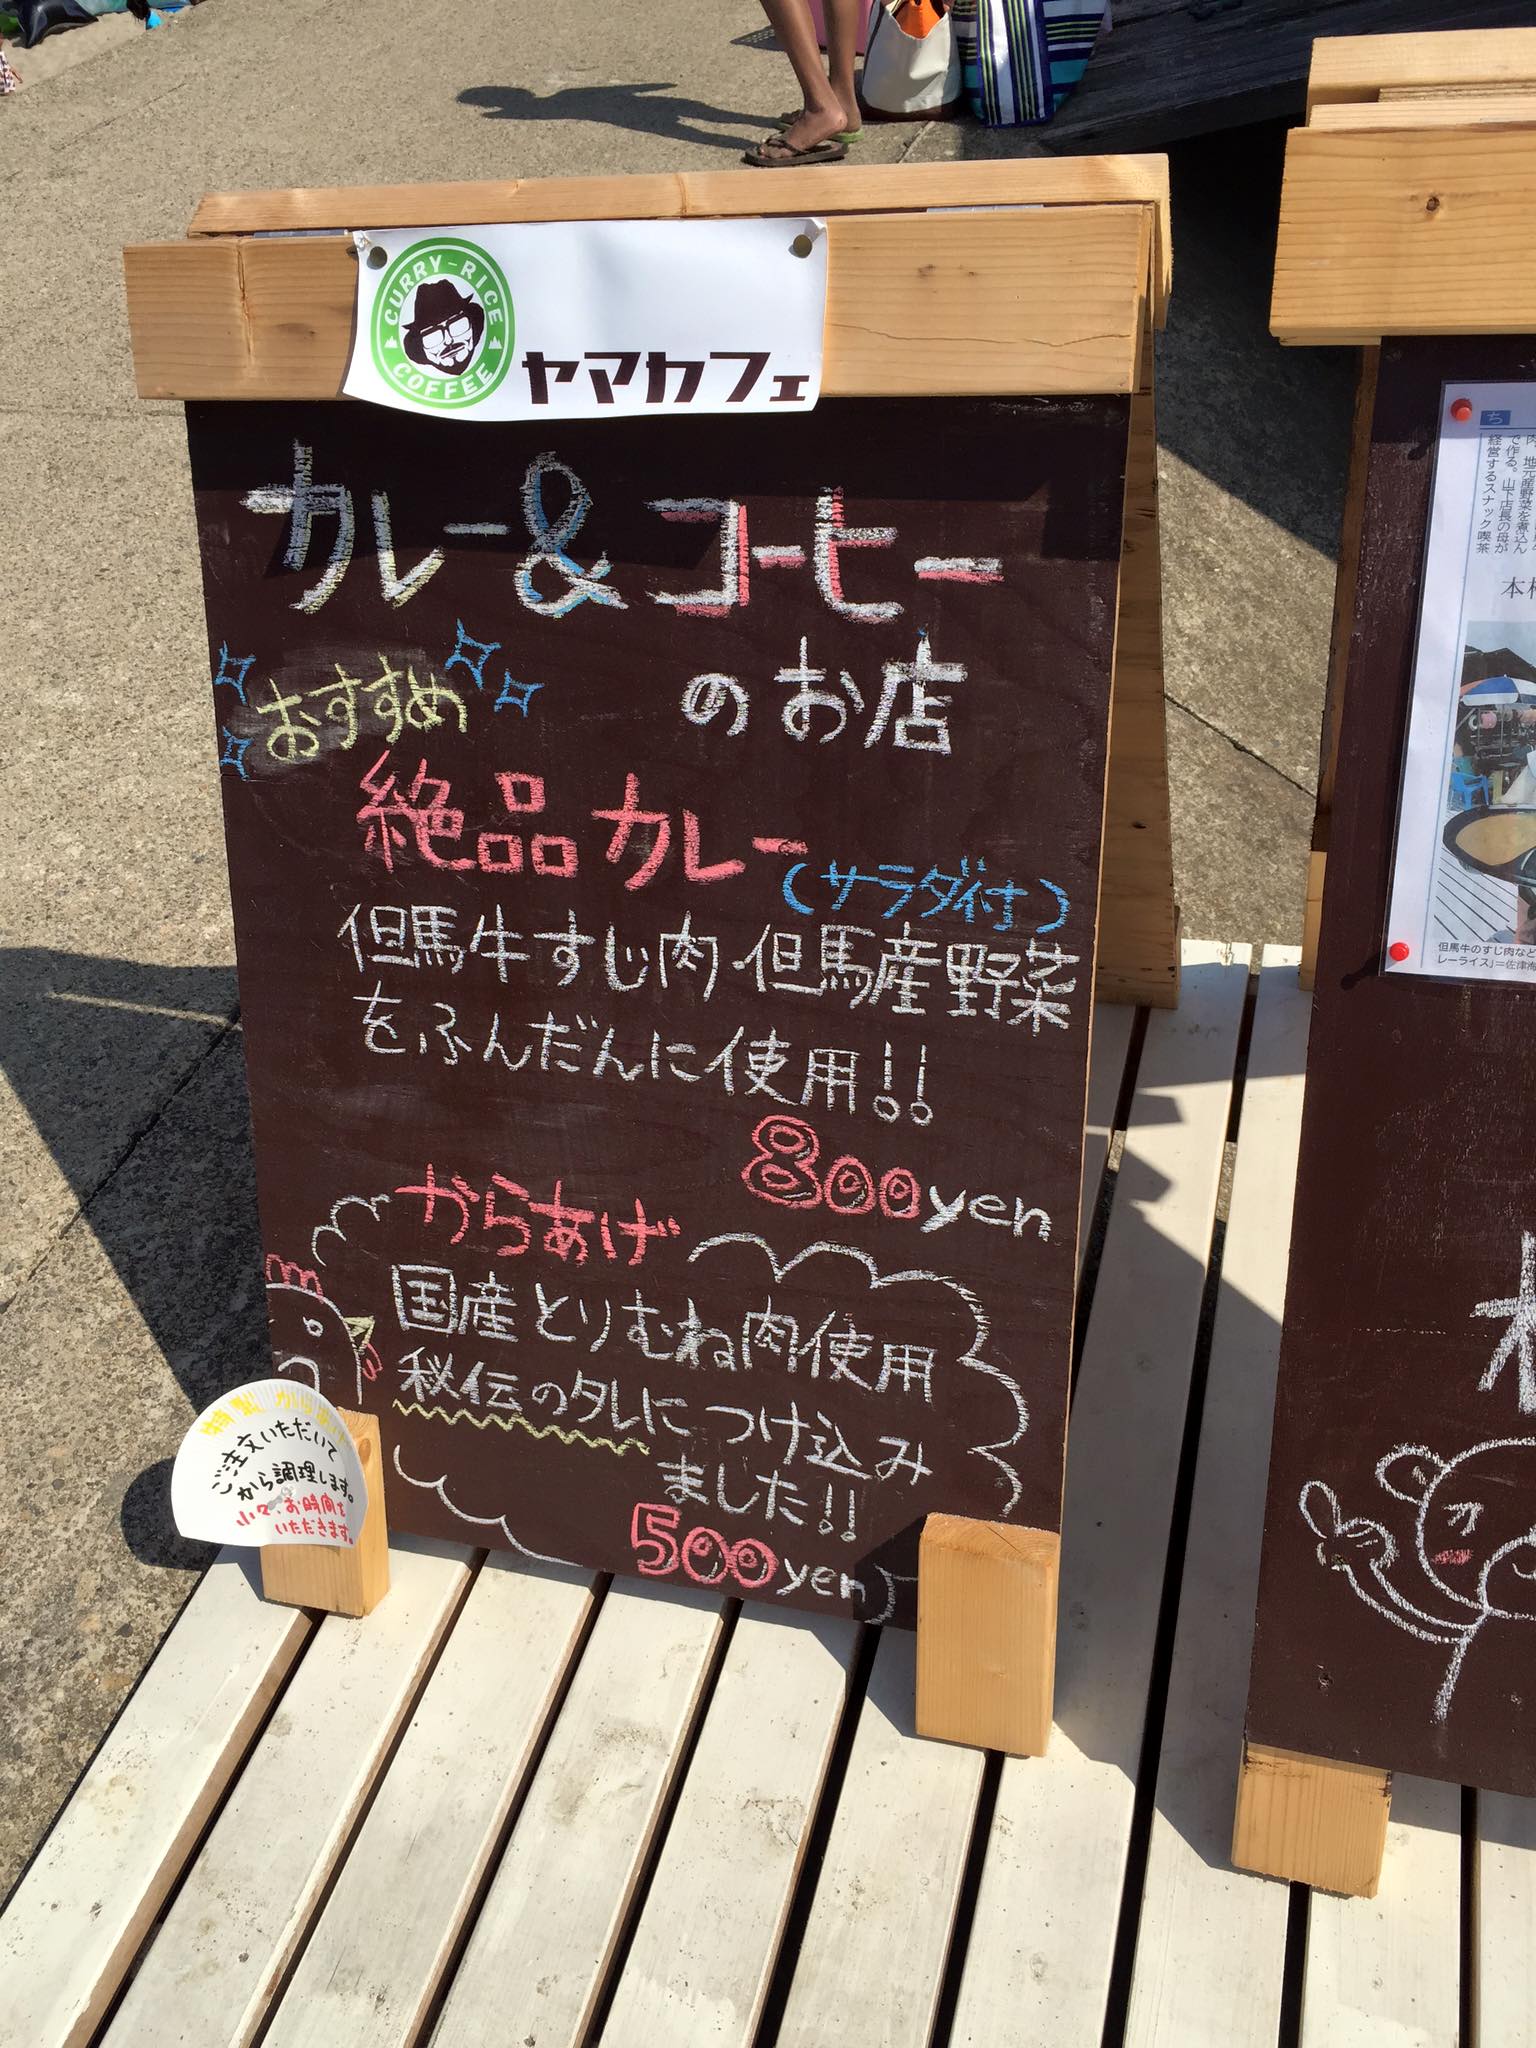 CURRY-RICE
COFFEE
ヤマカフェ
カレー&コーヒー
のお店
おすすめ
絶品カレー
(サラダ付)
但馬牛すじ肉・但馬産野菜
をふんだんに使用!!
800yen
からあげ
国産とりむね肉使用
秘伝のタレにつけ込み
ました!!
500yen
特製 からあげ
ご注文いただいて
から調理します。
少々、お時間を
いただきます。
ち
地元産野菜を煮込ん
で作る。山下店長の母が
経営するスナック喫茶
本
但馬牛のすじ肉など
レーライス」=佐津海